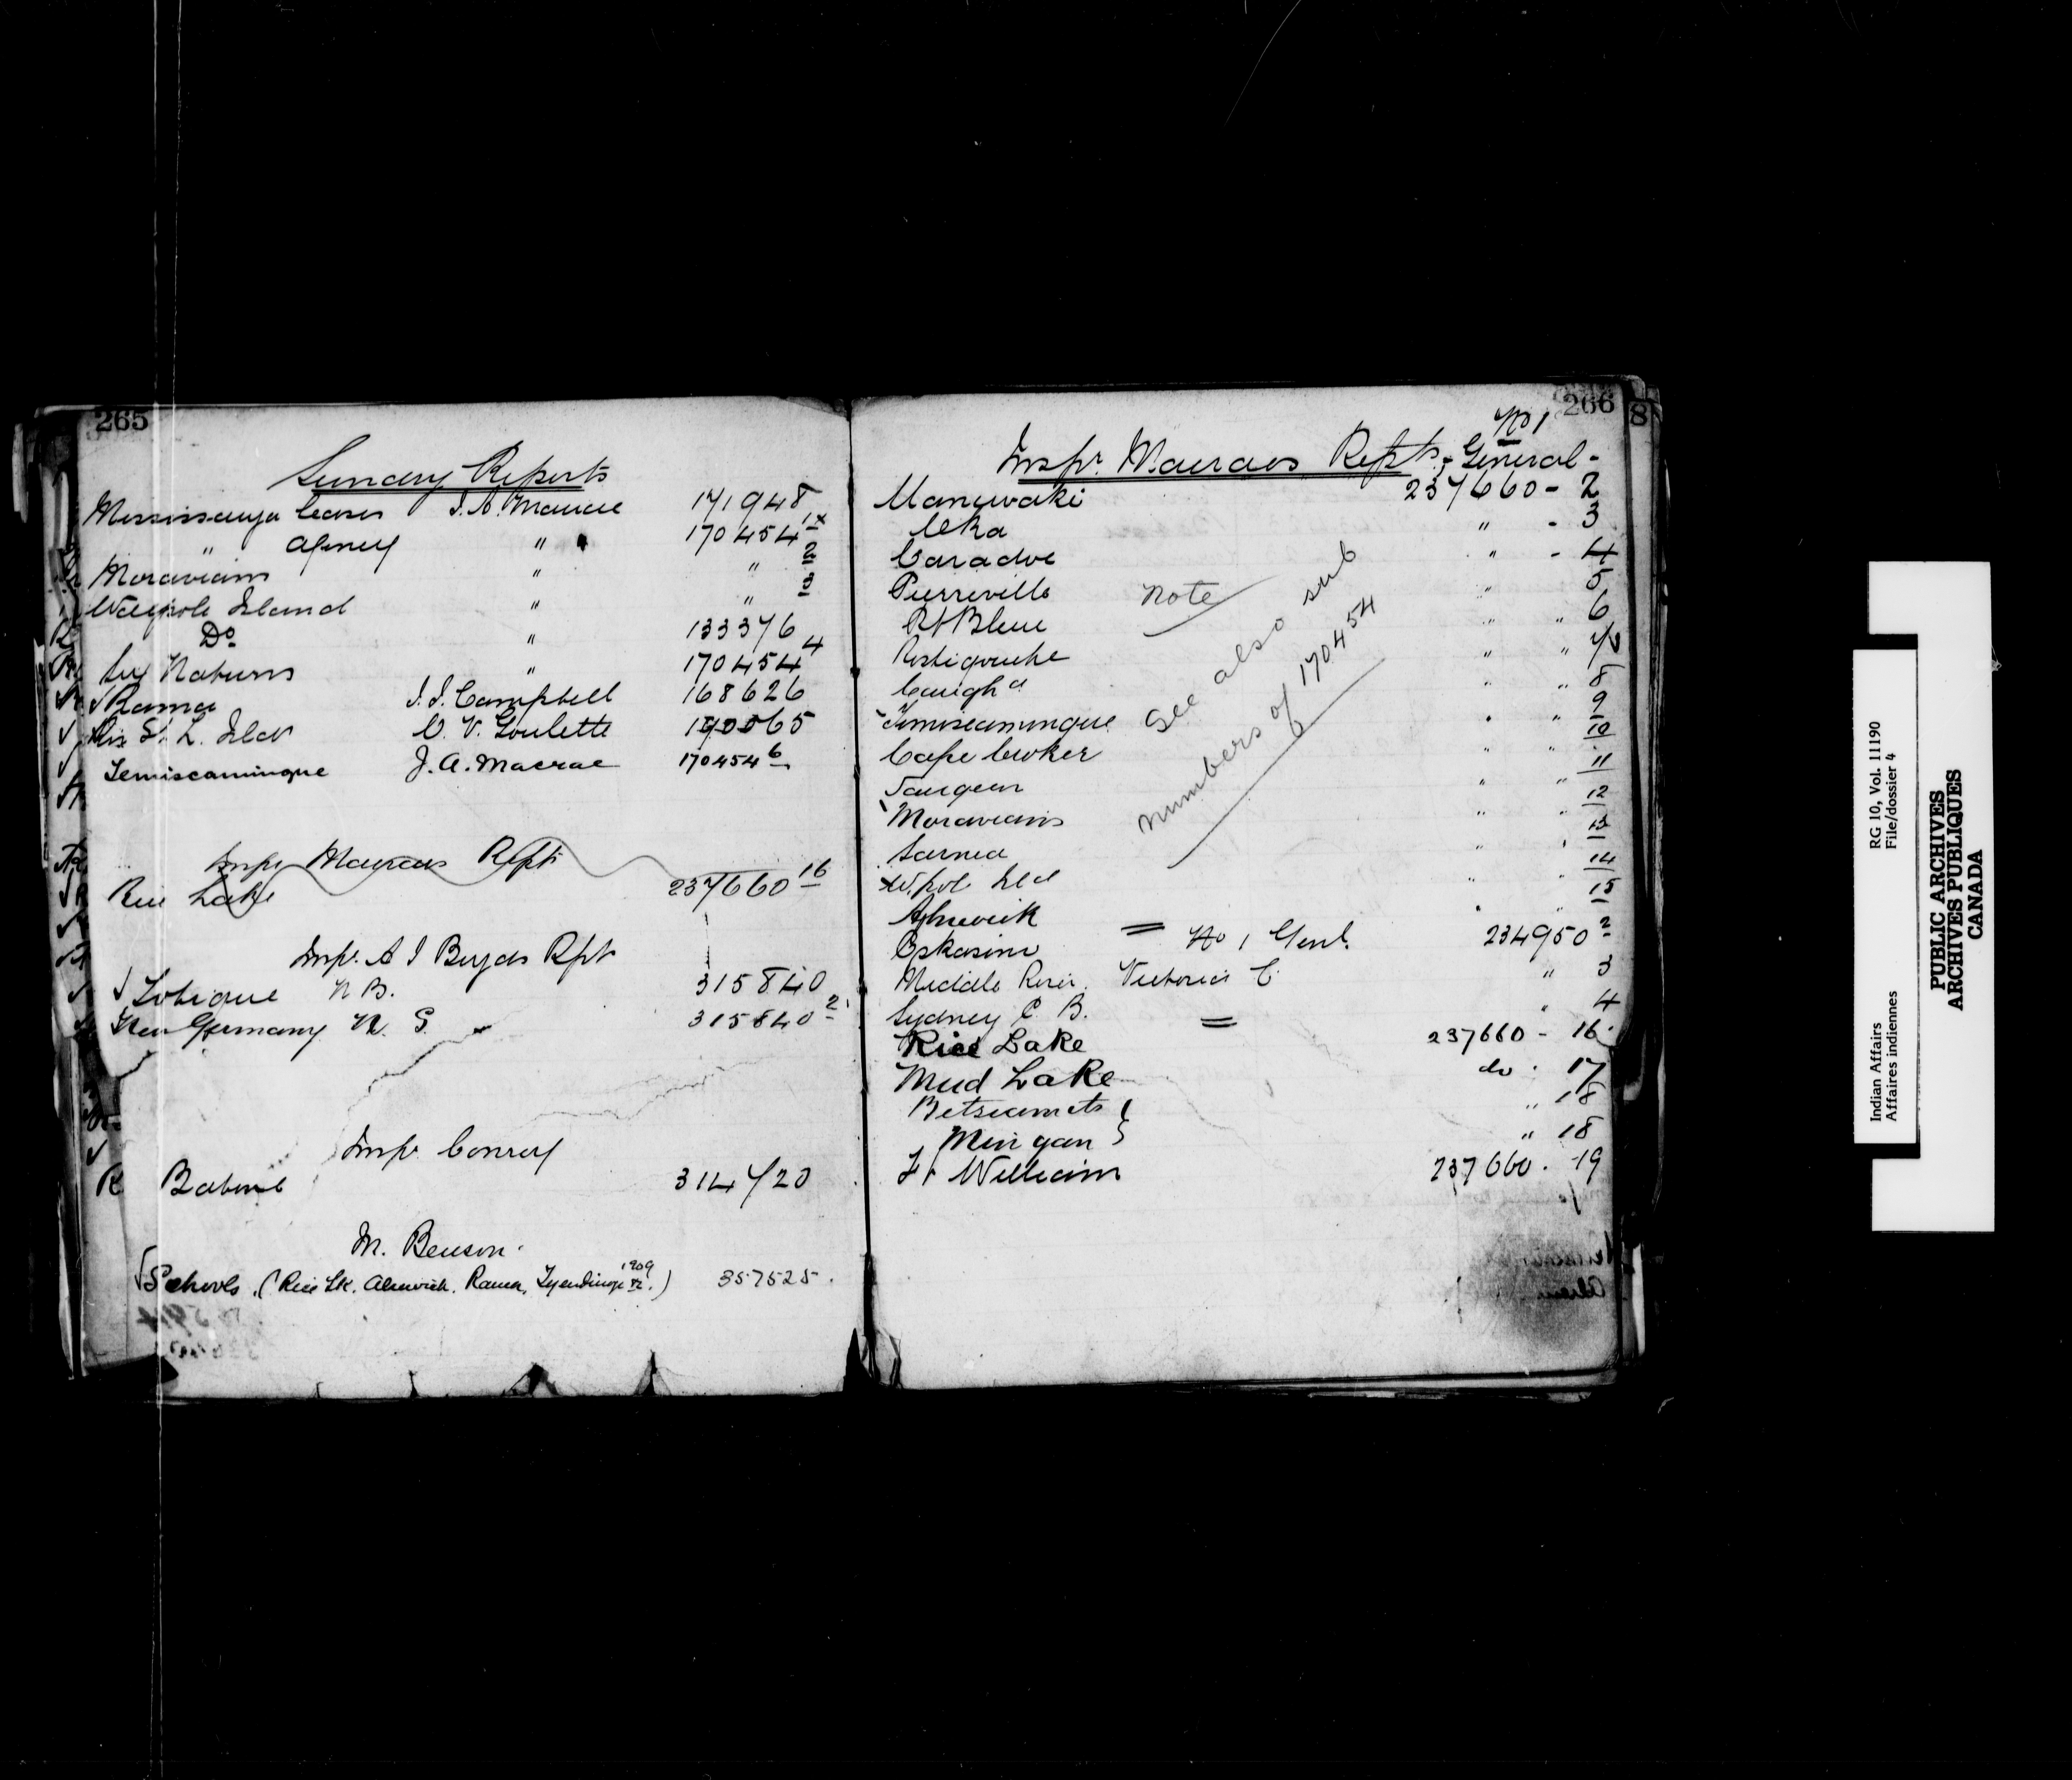 265
Sundry Reports
Mississauga Leases J. A. Macrae 171948
" Agency " 170454 1x
Moravians " " 2
Walpole Island " " 3
Do " 133376
Six Nations " 170454 4
Rama I. J. Campbell 168626
St. L. Islds O. V. Goulette 190065
Temiscamingue J. A. Macrae 170454 6
Inspr Macraes Rept
Rice Lake 237660 16
Insp. A J Boyds Rpt
Tobique N B. 315840
New Germany N. S. 315840 2
Insp. Conroy
R 314720
M. Benson.
Schools. (Rice Lk. Alnwick. Rama, Tyendinaga &c. 1909) 357525.
266
8
No 1
Inspr. Macraes Repts, - General -
Maniwaki 237660 - 2
Oka " - 3
Caradoc " - 4
Pierreville " 5
Rt Bleue " " 6
Restigouche " " 7
Caughª " " 8
Temiscamingue " " 9
Cape Croker " " 10
Saugeen 11
Moravians " " 12
Sarnia " " 13
W.pole Isld " " 14
Alnwick " " 15
Eskasoni No 1 Genl. 234950 2
Middle River. Victoria C. " 3
Sydney C. B. " 4
Rice Lake 237660 - 16
Mud Lake do . 17
Betsiamits } " 18
Mingan } " 18
Ft William 237660 . 19
Note
See also sub
numbers of 170454
Indian Affairs RG 10, Vol. 11190
Affaires indiennes File/dossier 4
PUBLIC ARCHIVES
ARCHIVES PUBLIQUES
CANADA